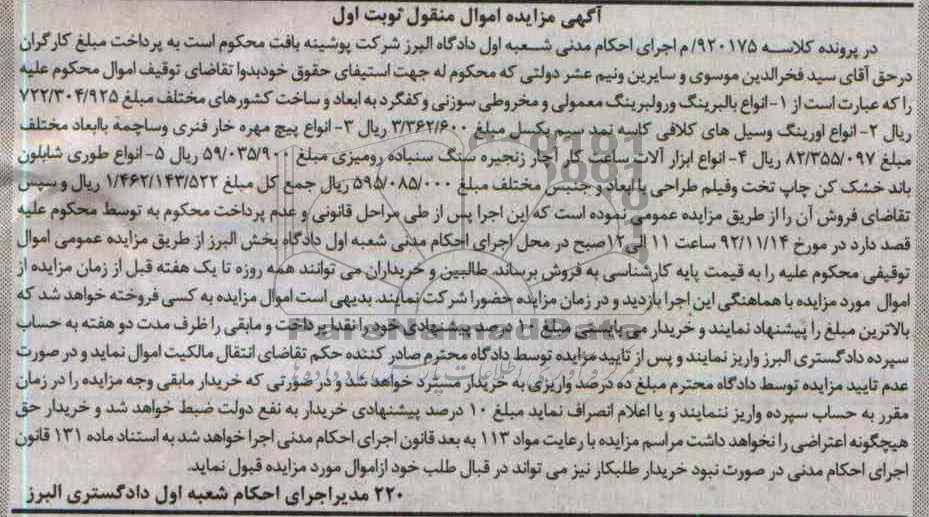 آگهی مزایده اموال منقول نوبت اول
در پرونده کلاسه ۹۲۰۱۷۵/ م اجرای احکام مدنی شعبه اول دادگاه البرز شرکت پوشینه بافت محکوم است به پرداخت مبلغ کارگران
درحق آقای سید فخرالدین موسوی و سایرین ونیم عشر دولتی که محکوم له جهت استیفای حقوق خودبدوا تقاضای توقیف اموال محکوم علیه
را که عبارت است از ۱- انواع بالبرینگ ورولبرینگ معمولی و مخروطی سوزنی وکفگرد به ابعاد و ساخت کشورهای مختلف مبلغ ۷۲۲/۳۰۴/۹۲۵
ریال ۲- انواع اورینگ وسیل های کلافی کاسه نمد سیم بکسل مبلغ ۳/۳۶۲/۶۰۰ ریال ۳- انواع پیچ مهره خار فنری وساچمه باابعاد مختلف
مبلغ ۸۲/۳۵۵/۰۹۷ ریال ۴- انواع ابزار آلات ساعت کار آچار زنجیره سنگ سنباده رومیزی مبلغ ۵۹/۰۳۵/۹۰۰ ریال ۵- انواع طوری شابلون
باند خشک کن چاپ تخت وفیلم طراحی باابعاد و جنبس مختلف مبلغ ۵۹۵/۰۸۵/۰۰۰ ریال جمع کل مبلغ ۱/۴۶۲/۱۴۳/۵۲۲ ریال و سپس
تقاضای فروش آن را از طریق مزایده عمومی نموده است که این اجرا پس از طی مراحل قانونی و عدم پرداخت محکوم به توسط محکوم علیه
قصد دارد در مورخ ۹۲/۱۱/۱۴ ساعت ۱۱ الی۱۲صبح در محل اجرای احکام مدنی شعبه اول دادگاه بخش البرز از طریق مزایده عمومی اموال
توقیفی محکوم علیه را به قیمت پایه کارشناسی به فروش برساند. طالبین و خریداران می توانند همه روزه تا یک هفته قبل از زمان مزایده از
اموال مورد مزایده با هماهنگی این اجرا بازدید و در زمان مزایده حضورا شرکت نمایند. بدیهی است اموال مزایده به کسی فروخته خواهد شد که
بالاترین مبلغ را پیشنهاد نمایند و خریدار می بایستی مبلغ ۱۰ درصد پیشنهادی خود را نقدا پرداخت و مابقی را ظرف مدت دو هفته به حساب
سپرده دادگستری البرز واریز نمایند و پس از تایید مزایده توسط دادگاه محترم صادر کننده حکم تقاضای انتقال مالکیت اموال نماید و در صورت
عدم تایید مزایده توسط دادگاه محترم مبلغ ده درصد واریزی به خریدار مسترد خواهد شد و در صورتی که خریدار مابقی وجه مزایده را در زمان
مقرر به حساب سپرده واریز ننمایند و یا اعلام انصراف نماید مبلغ ۱۰ درصد پیشنهادی خریدار به نفع دولت ضبط خواهد شد و خریدار حق
هیچگونه اعتراضی را نخواهد داشت مراسم مزایده با رعایت مواد ۱۱۳ به بعد قانون اجرای احکام مدنی اجرا خواهد شد به استناد ماده ۱۳۱ قانون
اجرای احکام مدنی در صورت نبود خریدار طلبکار نیز می تواند در قبال طلب خود ازاموال مورد مزایده قبول نماید.
۲۲۰ مدیراجرای احکام شعبه اول دادگستری البرز
ParsNamadData